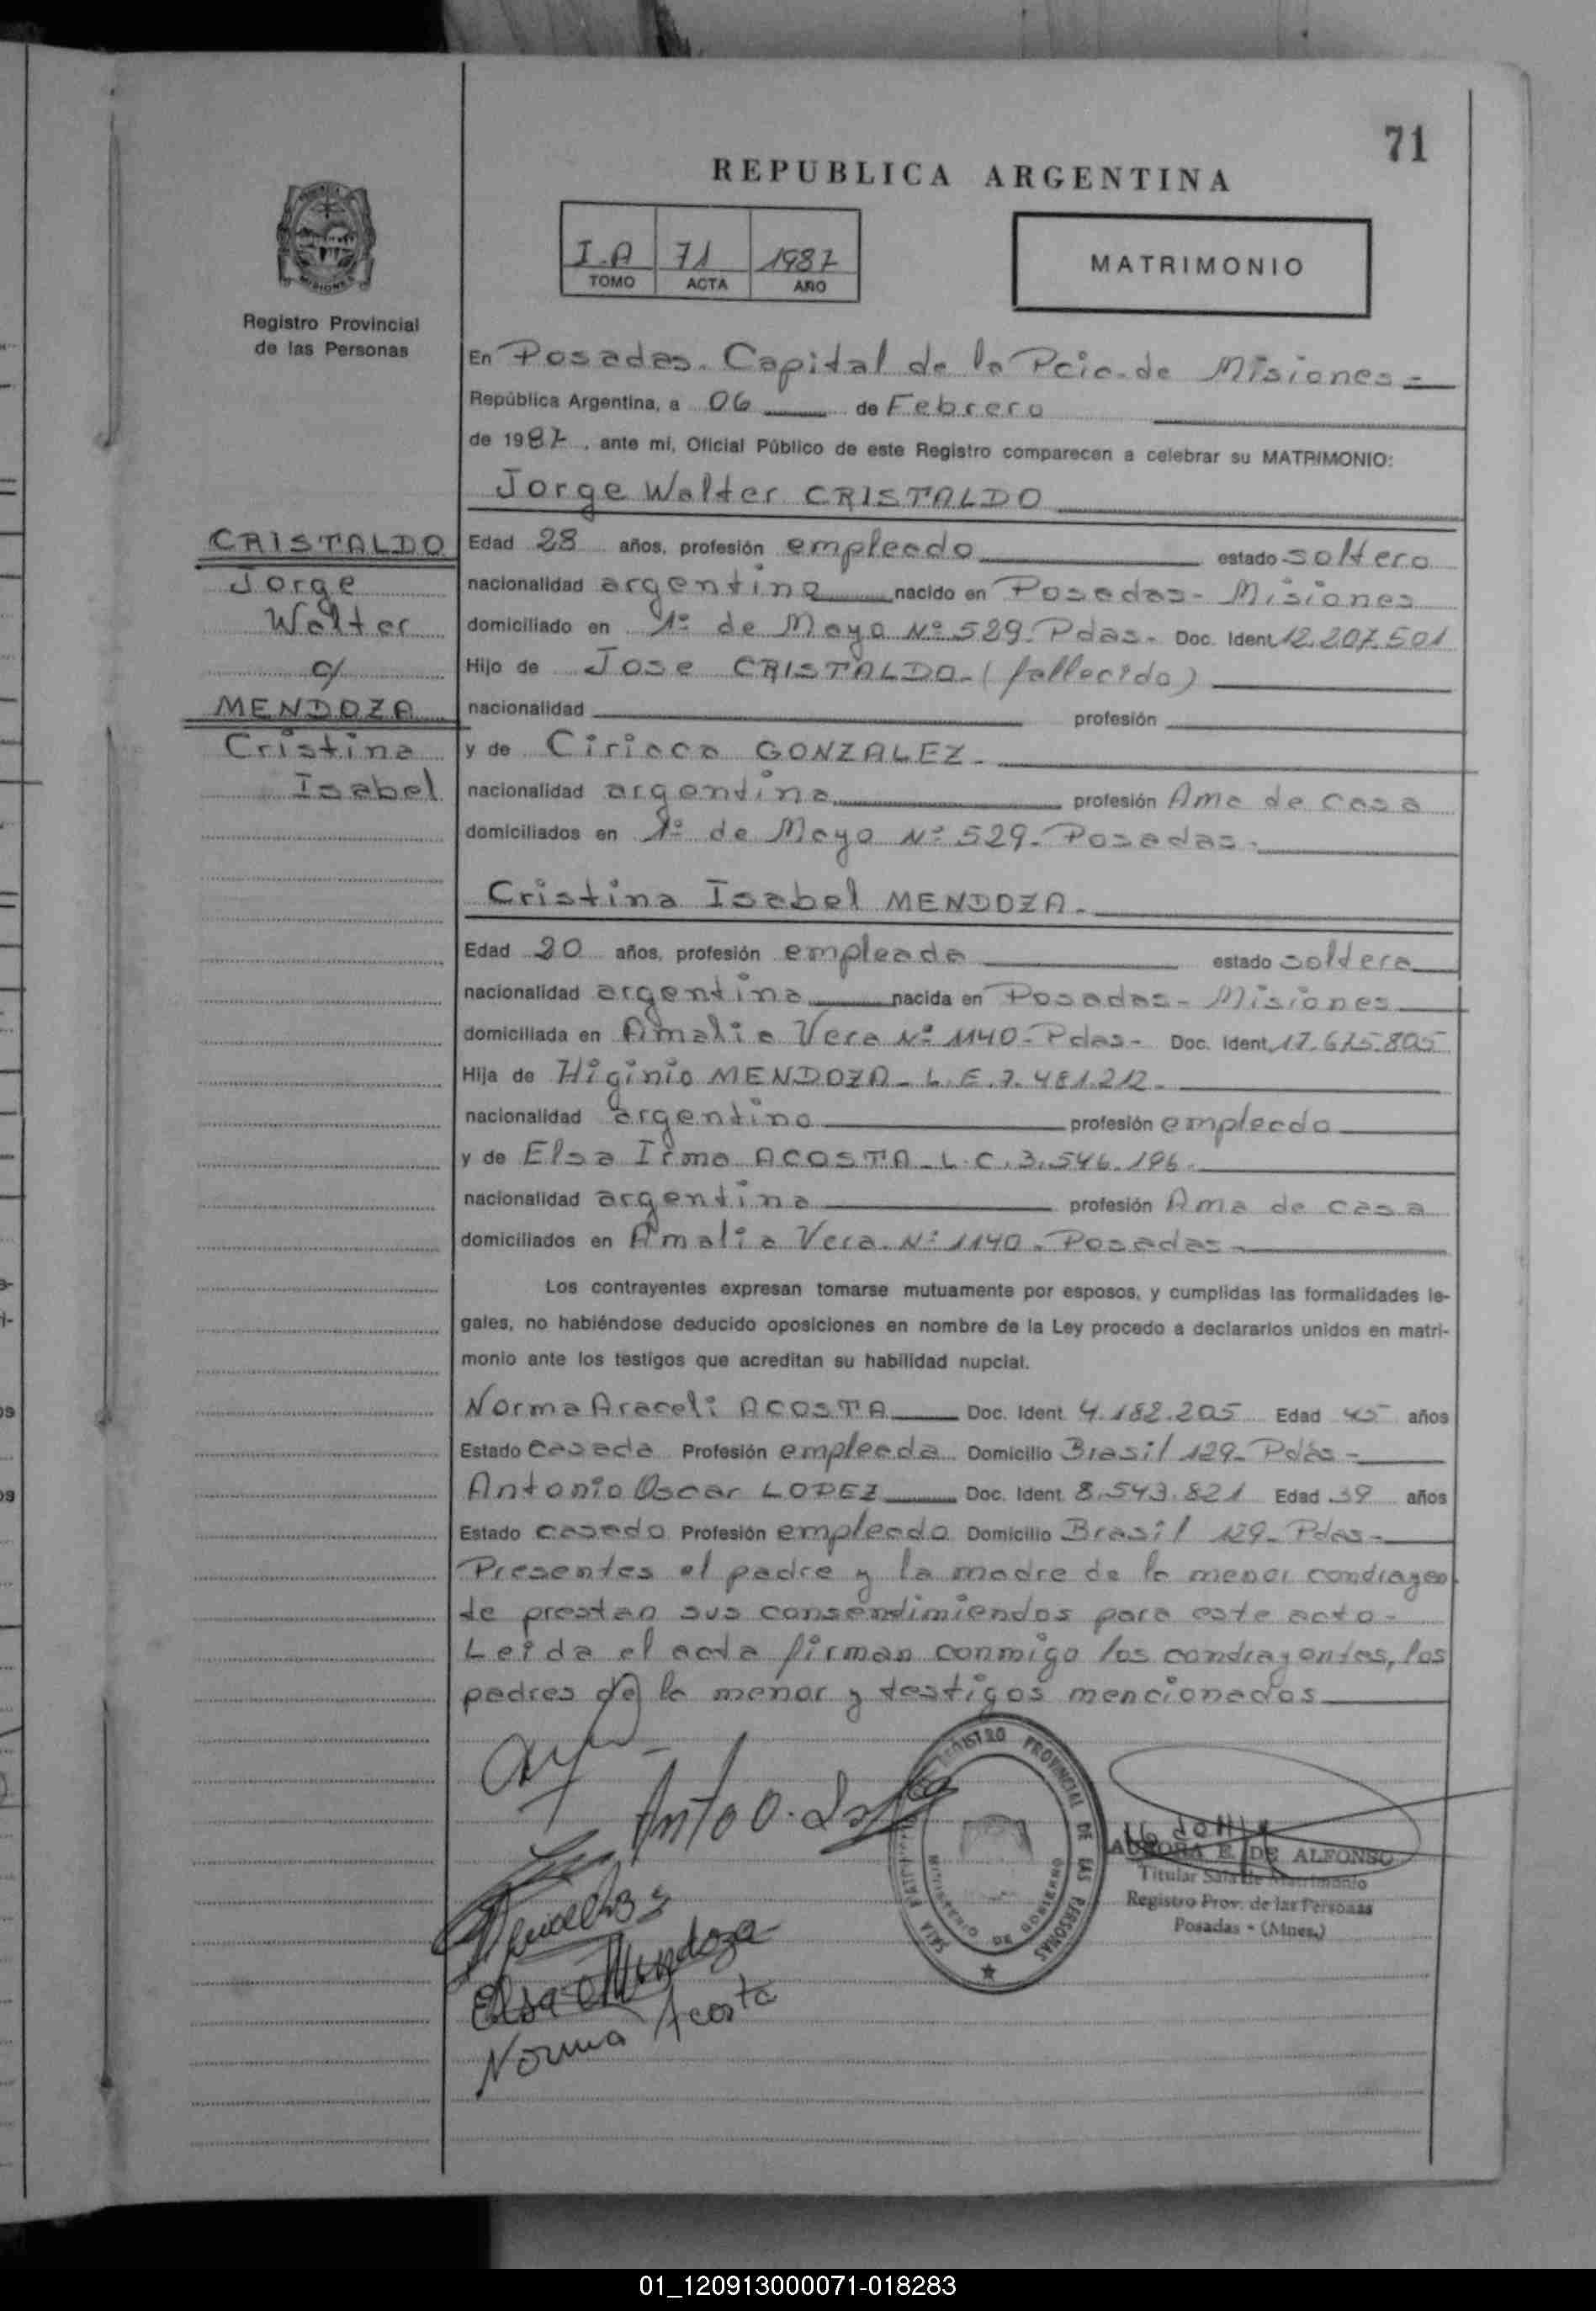 71
REPUBLICA ARGENTINA
I.A 71 1987
TOMO ACTA AÑO
MATRIMONIO
Registro Provincial
de las Personas
En Posadas. Capital de la Pcia. de Misiones -
República Argentina, a 06 de Febrero
de 1987, ante mi, Oficial Público de este Registro comparecen a celebrar su MATRIMONIO:
Jorge Walter CRISTALDO
CRISTALDO
Jorge
Walter
c/
MENDOZA
Cristina
Isabel
Edad 28 años, profesión empleado estado soltero
nacionalidad argentina nacido en Posadas - Misiones
domiciliado en 1º de Mayo Nº 529 - Pdas - Doc. Ident. 12.207.501
Hijo de Jose CRISTALDO - (fallecido)
nacionalidad profesión
y de Ciriaca GONZALEZ -
nacionalidad argentina profesión Ama de casa
domiciliados en 1º de Mayo Nº 529 - Posadas -
Cristina Isabel MENDOZA -
Edad 20 años, profesión empleada estado soltera
nacionalidad argentina nacida en Posadas - Misiones
domiciliada en Amalia Vera Nº 1140 - Pdas - Doc. Ident. 17.675.805
Hija de Higinio MENDOZA - L.E. 7.481.212 -
nacionalidad argentino profesión empleado
y de Elsa Irma ACOSTA - L.C. 3.546.196 -
nacionalidad argentina profesión Ama de casa
domiciliados en Amalia Vera - Nº 1140 - Posadas -
Los contrayentes expresan tomarse mutuamente por esposos, y cumplidas las formalidades le-
gales, no habiéndose deducido oposiciones en nombre de la Ley procedo a declararlos unidos en matri-
monio ante los testigos que acreditan su habilidad nupcial.
Norma Araceli ACOSTA Doc. Ident. 4.182.205 Edad 45 años
Estado casada Profesión empleada Domicilio Brasil 129 - Pdas -
Antonio Oscar LOPEZ Doc. Ident. 8.543.821 Edad 39 años
Estado casado Profesión empleado Domicilio Brasil 129 - Pdas -
Presentes el padre y la madre de la menor contrayen
te prestan sus consentimientos para este acto -
Leida el acta firman conmigo los contrayentes, los
padres de la menor y testigos mencionados
Anto O.
Elsa Mendoza
Norma Acosta
REGISTRO PROVINCIAL DE LAS PERSONAS
MINISTERIO DE GOBIERNO
AURORA E. DE ALFONSO
Titular Sala de Matrimonio
Registro Prov. de las Personas
Posadas - (Mnes.)
01_120913000071-018283